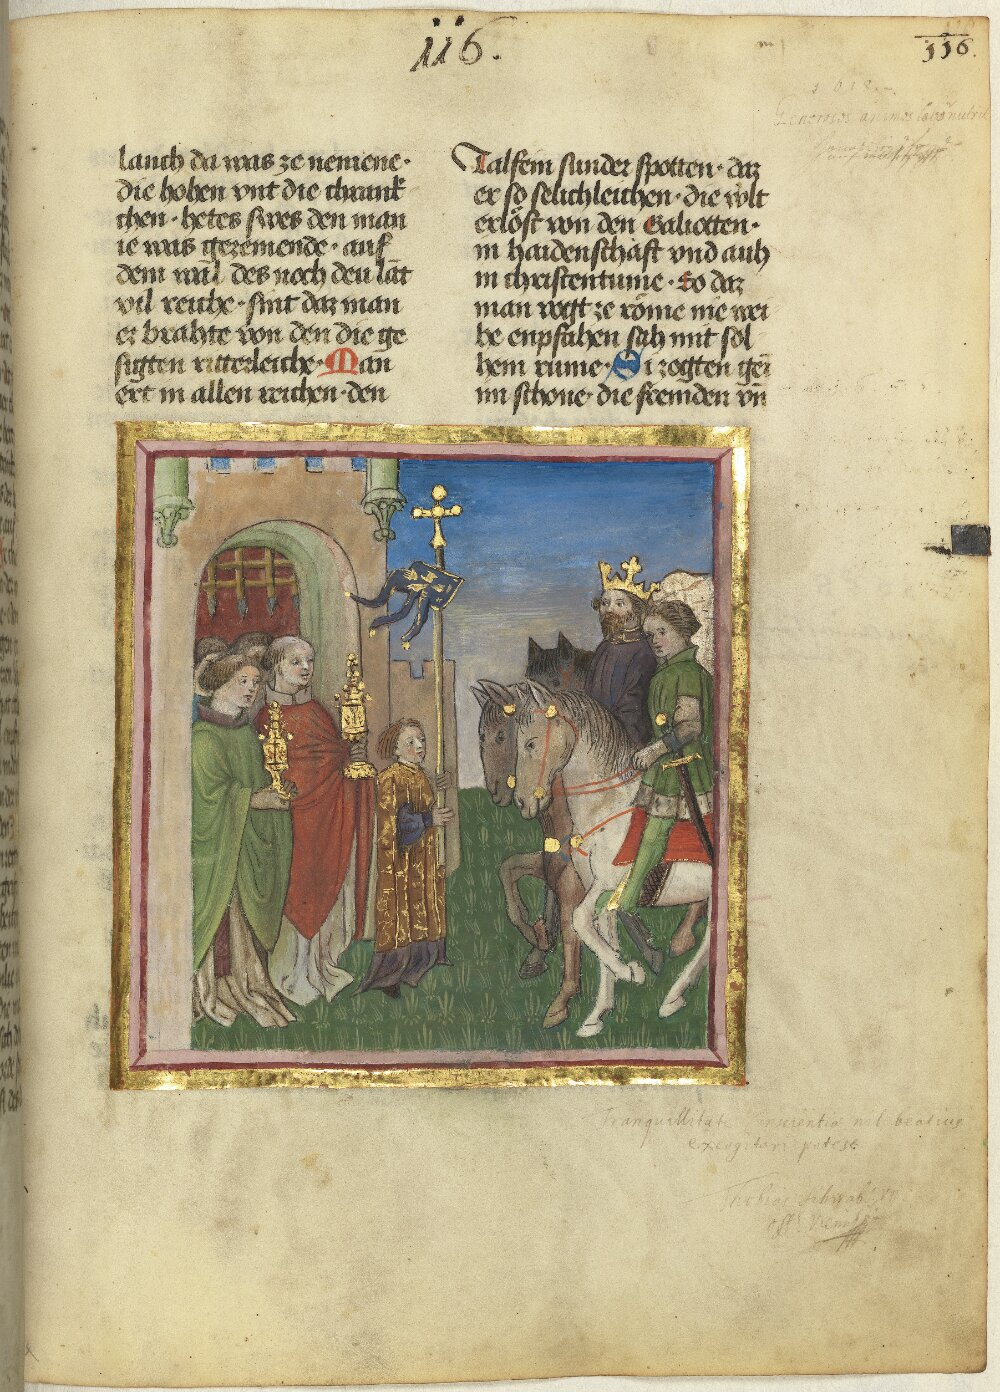 116.
116.
Generosos animos labor nutrit
lanch da was ze nemene·
die hohen vnt die chrank
chen· hetes swes den man
ie was gezemende· auf
dem wal des noch deu lāt
vil reiche· sint daz man
er brahte von den die ge
sigten ritterleiche· Man
ert in allen reichen· den
Talfein sunder spotten· daz
er so selichleichen· die wlt
erlöst von den Galiotten·
in haidenschaft vnd auh
in christentume· So daz
man vogt ze röme nie wer
be enpfahen sah mit sol
hem rume· Si zogten gei
im schone· die fremden vn̄
Tranquillitate conscientia nil beatius
excogitari potest